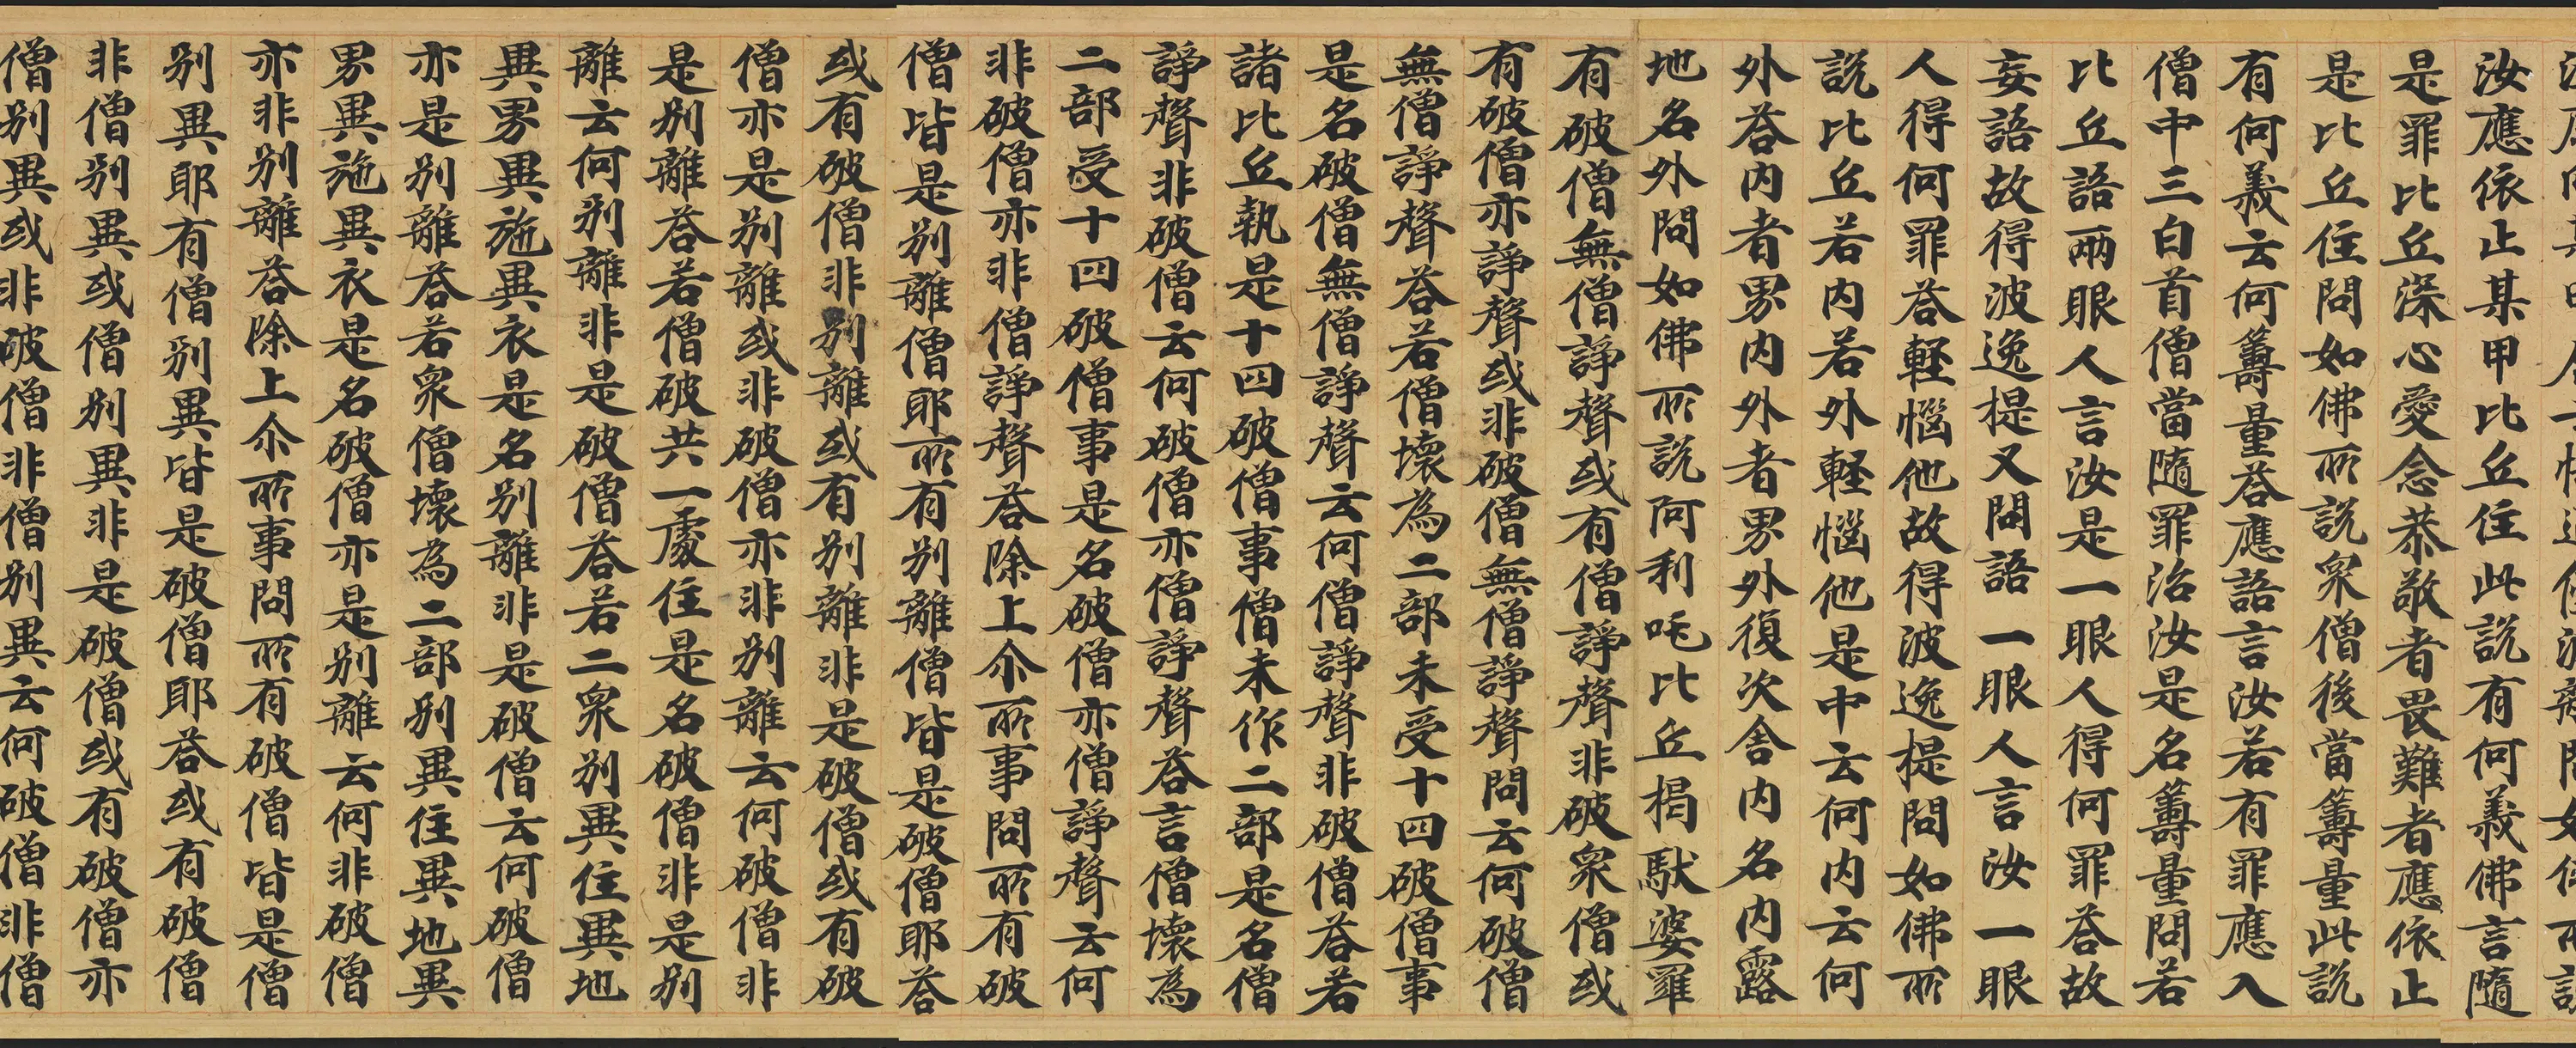 汝應依止某甲比丘住此說有何義佛言隨
是罪比丘深心愛念恭敬者畏難者應依止
是比丘住問如佛所說眾僧後當籌量此說
有何義云何籌量荅應語言汝若有罪應入
僧中三白首僧當隨罪治汝是名籌量問若
比丘語兩眼人言汝是一眼人得何罪荅故
妄語故得波逸提又問語一眼人言汝一眼
人得何罪荅輕惱他故得波逸提問如佛所
說比丘若內若外輕惱他是中云何內云何
外荅內者界內外者界外復次舍內名內露
地名外問如佛所說阿利吒比丘揭馱婆羅
有破僧無僧諍聲或有僧諍聲非破眾僧或
有破僧亦諍聲或非破僧無僧諍聲問云何破僧
無僧諍聲荅若僧壞為二部未受十四破僧事
是名破僧無僧諍聲云何僧諍聲非破僧荅若
諸比丘執是十四破僧事僧未作二部是名僧
諍聲非破僧云何破僧亦僧諍聲荅言僧壞為
二部受十四破僧事是名破僧亦僧諍聲云何
非破僧亦非僧諍聲荅除上尒所事問所有破
僧皆是別離僧耶所有別離僧皆是破僧耶荅
或有破僧非別離或有別離非是破僧或有破
僧亦是別離或非破僧亦非別離云何破僧非
是別離荅若僧破共一處住是名破僧非是別
離云何別離非是破僧荅若二眾別異住異地
異界異施異衣是名別離非是破僧云何破僧
亦是別離荅若眾僧壞為二部別異住異地異
界異施異衣是名破僧亦是別離云何非破僧
亦非別離荅除上尒所事問所有破僧皆是僧
別異耶有僧別異皆是破僧耶荅或有破僧
非僧別異或僧別異非是破僧或有破僧亦
僧別異或非破僧非僧別異云何破僧非僧